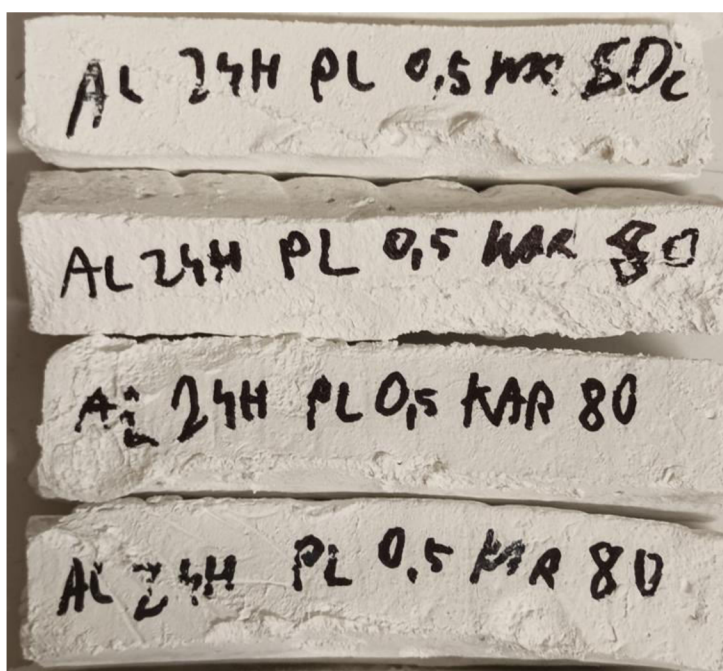 AL 24H PL 0,5 KAR 80
AL 24H PL 0,5 KAR 80
AL 24H PL 0,5 KAR 80
AL 24H PL 0,5 KAR 80